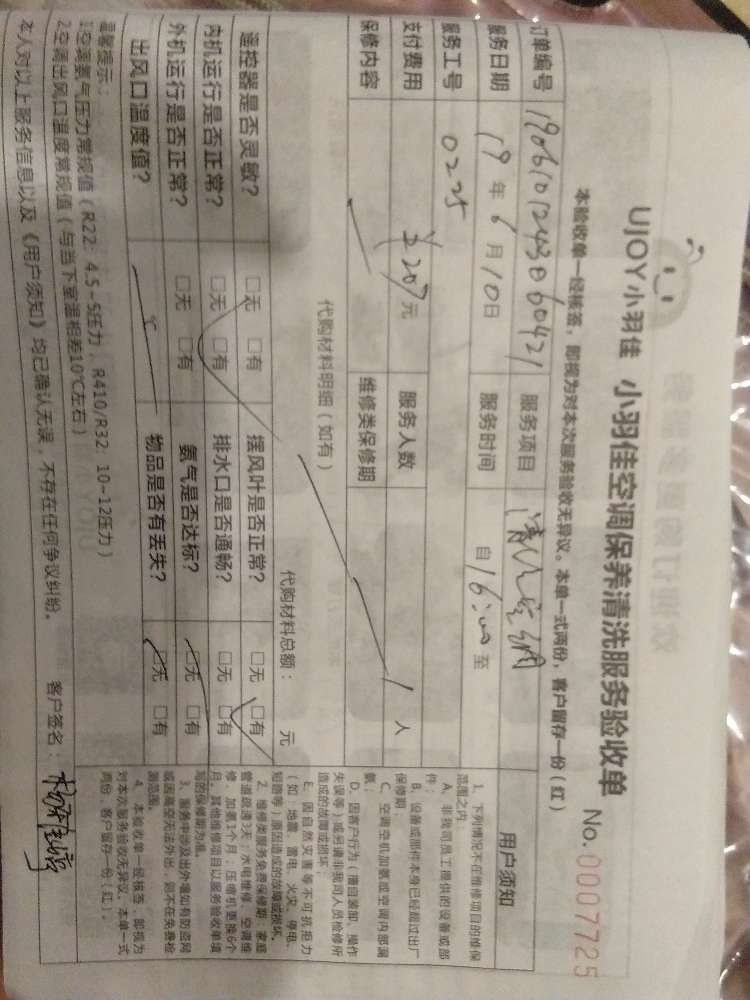 UJOY小羽佳 小羽佳空调保养清洗服务验收单
No. 0007725
本验收单一经核签，即视为对本次服务验收无异议。本单一式两份，客户留存一份（红）
订单编号 19061012430660421 服务项目 清洗空调
服务日期 19年6月10日 服务时间 自16:00至
服务工号 0225
支付费用 ¥207元 服务人数 1人
保修内容 维修类保修期
代购材料明细（如有）
代购材料总额： 元
遥控器是否灵敏？ □无 □有 摆风叶是否正常？ □无 □有
内机运行是否正常？ □无 □有 排水口是否通畅？ □无 □有
外机运行是否正常？ □无 □有 氨气是否达标？ □无 □有
出风口温度值？ ℃ 物品是否有丢失？ □无 □有
温馨提示：
1.空调氨气压力常规值（R22：4.5-5压力，R410/R32：10-12压力）
2.空调出风口温度常规值（与当下室温相差10℃左右）
本人对以上服务信息以及《用户须知》均已确认无误，不存在任何争议纠纷。 客户签名：
用户须知
1、下列情况不在维修项目的维保
范围之内：
A、非我司员工提供的设备或部
件；
B、设备或部件本身已经超过出厂
保修期；
C、空调空机加氨或空调内部漏
氨；
D、因客户行为（擅自装卸、操作
失误等）或另请非我司人员检修所
造成的故障或损坏；
E、因自然灾害等不可抗拒力
（如：地震、雷电、火灾、停电、
短路等）原因造成的故障或损坏。
2、维修类服务免费保修期：家庭
管道疏通3天；水电维修、空调维
修、加氨1个月；压缩机更换6个
月。其他维修项目以服务验收单填
写的保修期为准。
3、服务中涉及出外墙如有防盗网
或因高空无法外出，则不在免费检
测范围。
4、本验收单一经核签，即视为
对本次服务验收无异议。本单一式
两份，客户留存一份（红）。